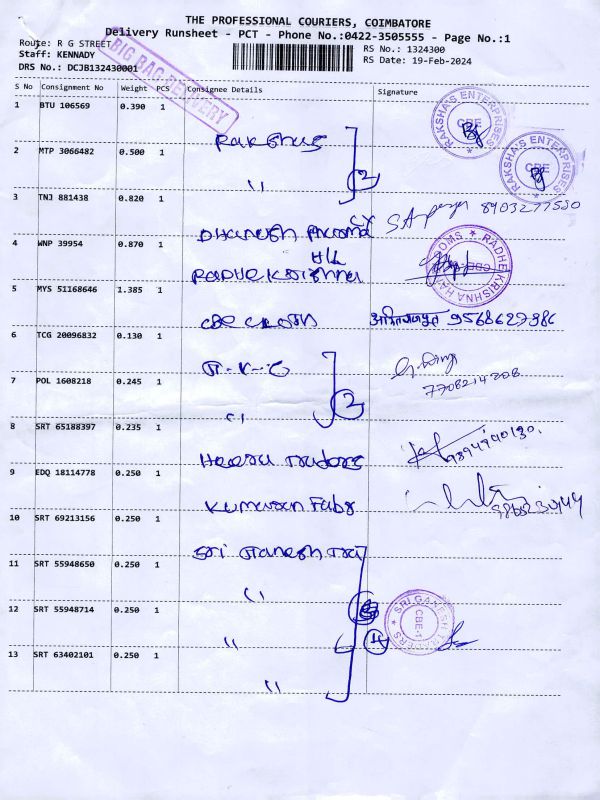 THE PROFESSIONAL COURIERS, COIMBATORE
Delivery Runsheet - PCT - Phone No.:0422-3505555 - Page No.:1
Route: R G STREET
RS No.: 1324300
Staff: KENNADY
RS Date: 19-Feb-2024
DRS No.: DCJB132430001
BIG BAG DELIVERY
S No Consignment No Weight PCS Consignee Details Signature
1 BTU 106569 0.390 1
RAKSHA'S ENTERPRISES CBE
2 MTP 3066482 0.500 1
2
RAKSHA'S ENTERPRISES CBE
3 TNJ 881438 0.820 1
Dhanesh
4 WNP 39954 0.870 1
Radhe Krishna
RADHE KRISHNA
5 MYS 51168646 1.385 1
CBE Cloth
6 TCG 20096832 0.130 1
7708214208
7 POL 1608218 0.245 1
2
8 SRT 65188397 0.235 1
Heera Traders
9 EDQ 18114778 0.250 1
Kumaran Fabs
10 SRT 69213156 0.250 1
Sri Ganesh Tra
11 SRT 55948650 0.250 1
12 SRT 55948714 0.250 1
4
SRI GANESH TRADERS CBE-1
13 SRT 63402101 0.250 1